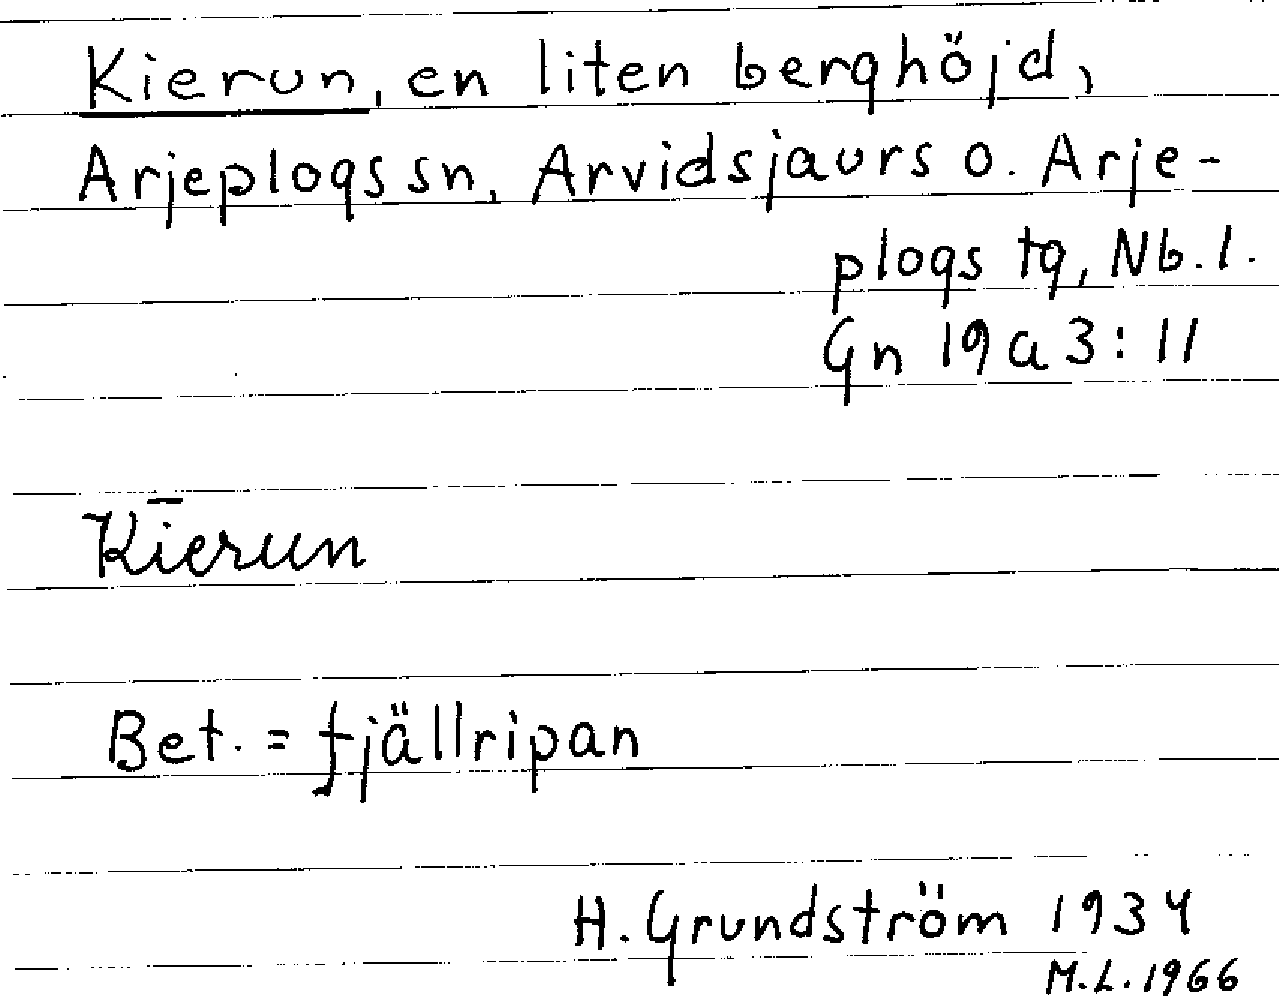 Kierun, en liten berghöjd,
Arjeplogs sn, Arvidsjaurs o. Arje-
plogs tg, Nb. l.
Gn 19 a 3: 11
Kīerun
Bet. = fjällripan
H. Grundström 1934
M.L. 1966